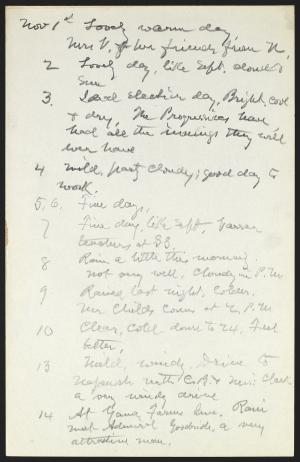 Nov 1st Lovely warm day,
Mrs V. & her friends from N.
2 Lovely day, like Sept. cloud &
Sun
3. Ideal election day, Bright, cool
& dry, The Progressives have
had all the innings they will
ever have
4 Mild, part cloudy; good day to
work.
5, 6. Fine days,
7 Fine day, like Sept, Vassar
teachers at SS.
8 Rain a little this morning.
not very well, Cloudy in P.M.
9 Rained last night, colder.
Mr Childs comes at P.M
10 Clear, cold down to 24, Feel
better,
13 Mild, windy. Drive to
with & Mrs. Clark
a very windy drive
14 At Yama Farms Inn. Rain
met Admiral Goodrich, a very
attractive man.